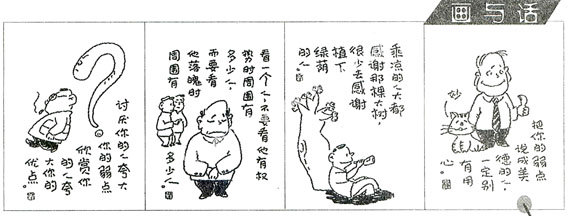 画与话
讨厌你的人夸大
你的弱点
欣赏你
的人夸
大你的
优点。
看一个人，不要看他有权
势时周围有
多少人，
而要看
他落魄时
周围有
多少人。
乘凉的人大都
感谢那棵大树，
很少去感谢
植下
绿荫
的人。
妙
把你的弱点
说成美
德的人，
一定别
有用
心。